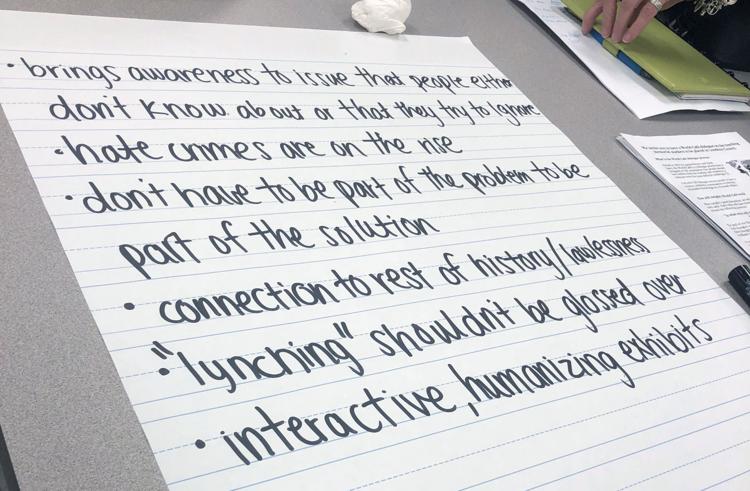 • brings awareness to issue that people either
don't know about or that they try to ignore
• hate crimes are on the rise
• don't have to be part of the problem to be
part of the solution
• connection to rest of history/lawlessness
• "lynching" shouldn't be glossed over
• interactive, humanizing exhibits